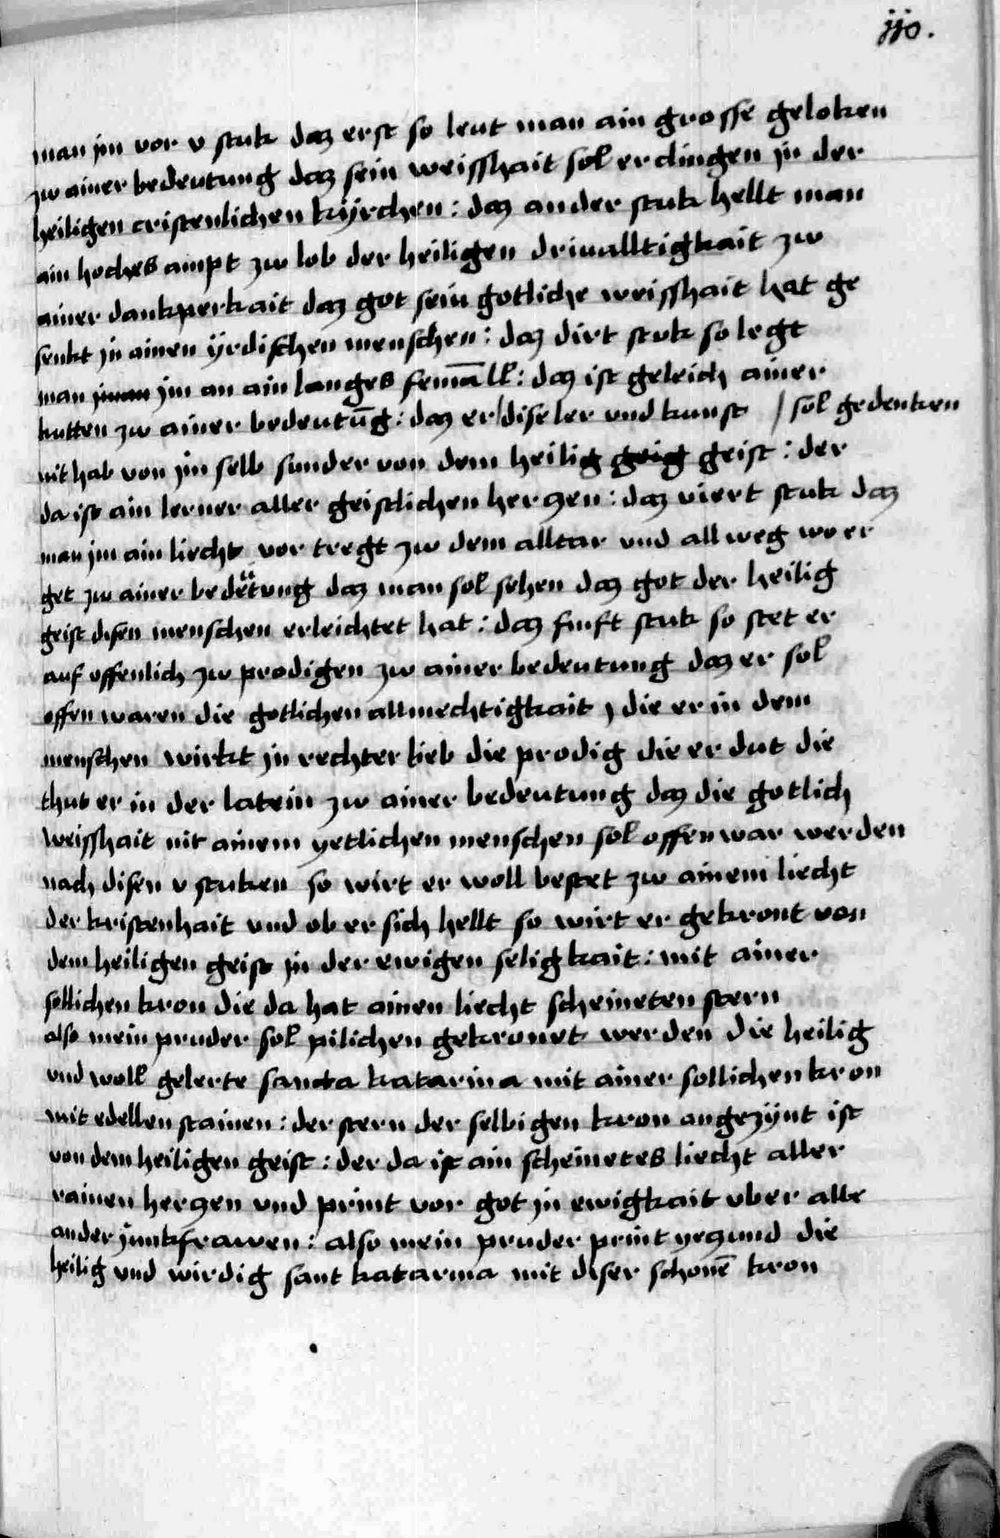 110.
man jm vor v stuk daz erst so leut man ain grosse geloken
zw ainer bedeutung daz sein weisshait sol erclingen jn der
heiligen cristenlichen kÿrchen : daz ander stuk hellt man
ain hoches ampt zw lob der heiligen driualltigkait zw
ainer dankperkait daz got sein gotliche weisshait hat ge
senkt jn ainen ÿrdischen menschen : daz dirt stuk so legt
man jm an ain langes femāll : daz ist geleich ainer
kutten zw ainer bedeutūg : daz er / dise ler vnd kunst / sol gedenken
nit hab von jm selb sunder von dem heilig geist : der
da ist ain lerner aller geistlichen herczen : daz viert stuk daz
man jm ain liecht vor tregt zw dem alltar vnd all weg wo er
get zw ainer bedeutung daz man sol sehen daz got der heilig
geist disen menschen erleichtet hat : daz finft stuk so stet er
auf offenlich zw prodigen zw ainer bedeutung daz er sol
offen waren die gotlichen allmechtigkait , die er in dem
menschen wirkt jn rechter lieb die prodig die er dut die
thut er in der latein zw ainer bedeutung daz die gotlich
weisshait nit ainem yetlichen menschen sol offenwar werden
nach disen v stuken so wirt er woll bestet zw ainem liecht
der kristenhait vnd ob er sich hellt so wirt er gekront von
dem heiligen geist jn der ewigen seligkait : mit ainer
sollichen kron die da hat ainen liecht scheineten stern
also mein pruder sol pilichen gekronet werden die heilig
vnd woll gelerte sancta katarina mit ainer sollichen kron
mit edellen stainen : der stern der selbigen kron angezÿnt ist
von dem heiligen geist : der da ist ain scheinetes liecht aller
rainen herczen vnd print vor got jn ewigkait vber alle
ander junkfrawen : also mein pruder print yeczund die
heilig vnd wirdig sant katarina mit diser schonē kron